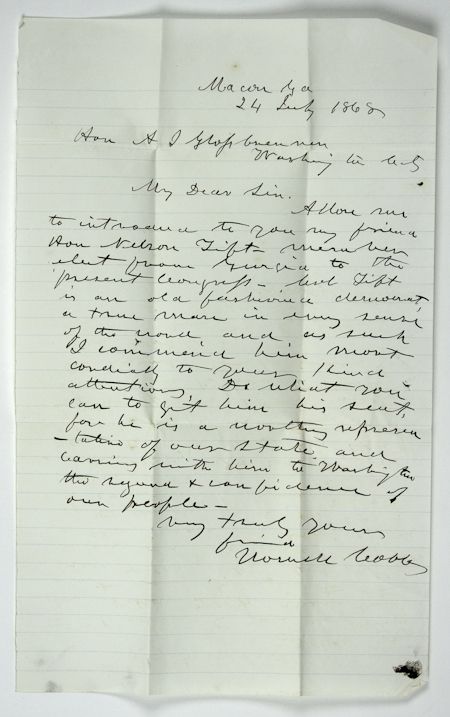 Macon Ga
24 July 1868
Hon A J Glossbrenner
Washington City
My Dear Sir.
Allow me
to introduce to you my friend
Hon Nelson Tift member
elect from Georgia to the
present Congress - Col Tift
is an old fashioned democrat,
a true man in every sense
of the word and as such
I commend him most
cordially to your kind
attentions. Do what you
can to get him his seat,
for he is a worthy represen
-tative of our State and
carries with him to Washington
the regard & confidence of
our people -
Very truly yours
friend
Howell Cobb